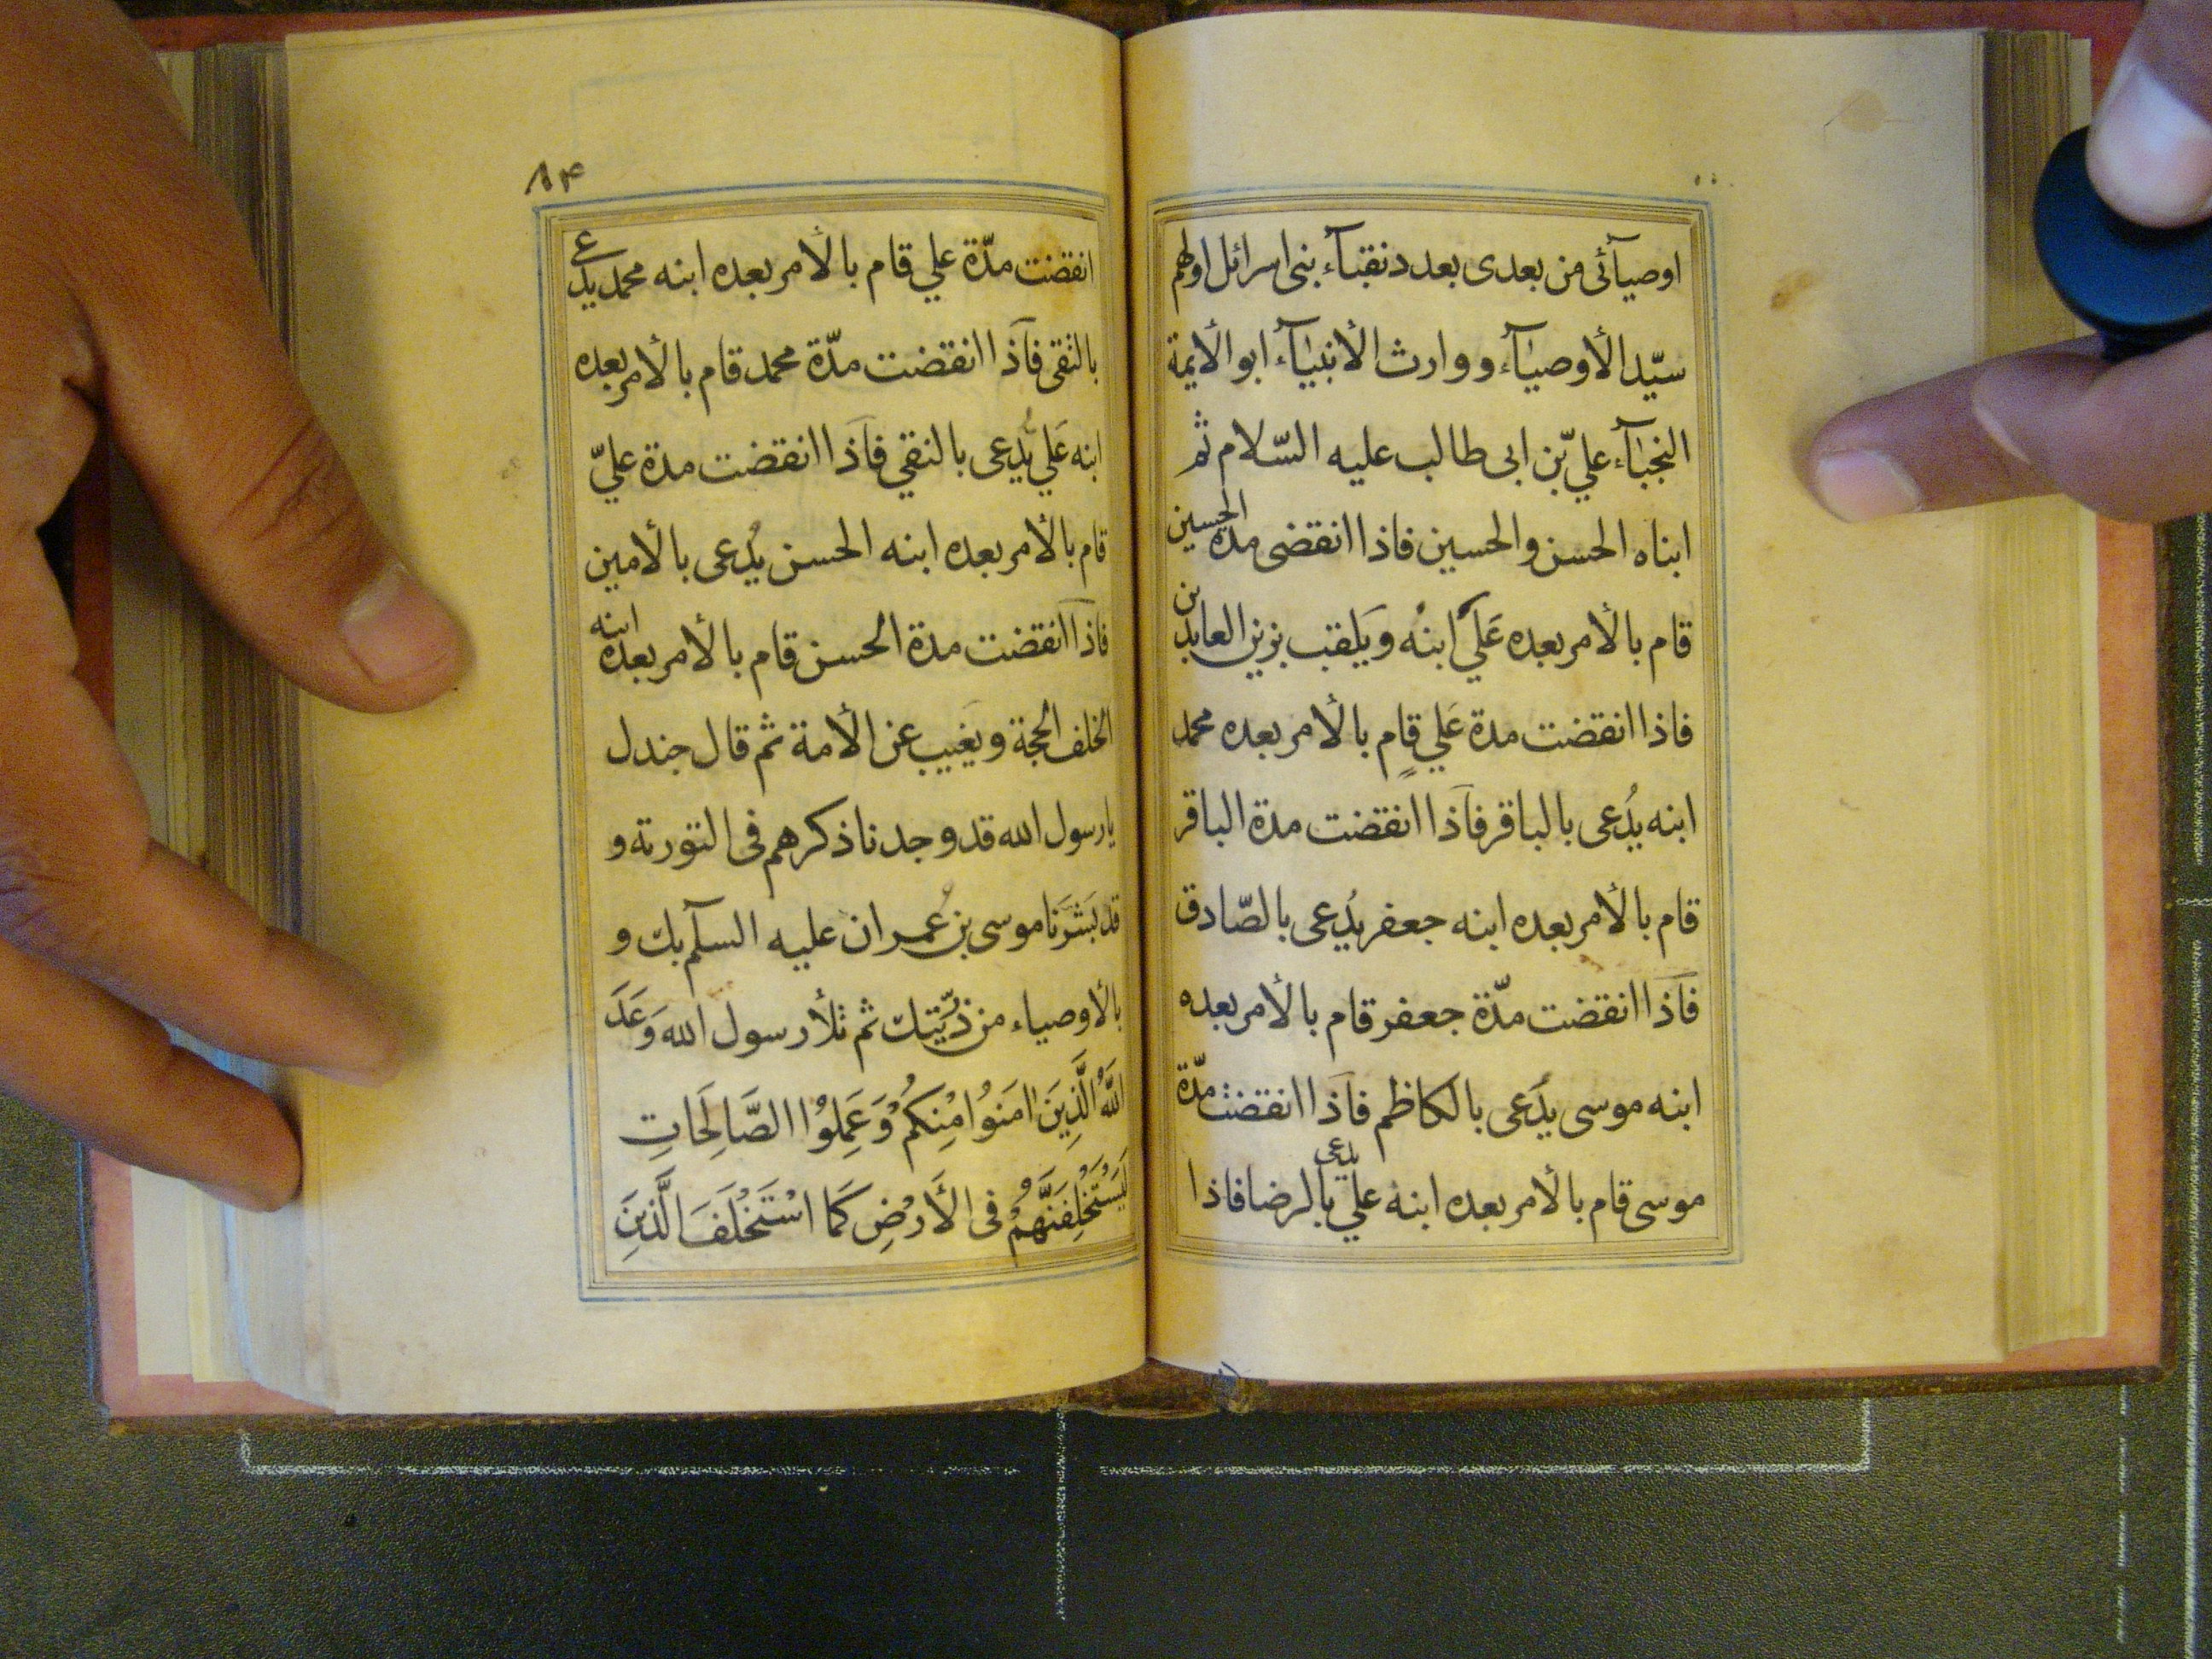 اوصيآئى من بعدى بعدد نقبآء بنى اسرائل اولهم
سيّد الأوصيآء ووارث الأنبيآء ابو الأيمة
النجبآء علي بّن ابى طالب عليه السّلام ثم
ابناه الحسن والحسين فاذا انقضى مدة الحسين
قام بالأمر بعده عَلي ابنُه ويَلقب بزين العابدين
فاذا انقضت مدة عَلي قام بالأمر بعده محمد
ابنه يُدعى بالباقر فآذا انقضت مدة الباقر
قام بالأمر بعده ابنه جعفر يُدعى بالصّادق
فآذا انقضت مدّة جعفر قام بالأمر بعده
ابنه موسى يدَعى بالكاظم فآذا انقضت مدّة
موسى قام بالأمر بعده ابنه علي يدعى بالرضا فاذا
٨٣
انقضت مدّة علي قام بالأمر بعده ابنه محمد يدعى
بالتقى فآذا انقضت مدّة محمد قام بالأمر بعده
ابنه عَلي يُدعى بالنقي فآذا انقضت مدة عليّ
قام بالأمر بعده ابنه الحسن يُدعى بالأمين
فاذآ انقضت مدة الحسن قام بالأمر بعده ابنه
الخلف الحجة ويغيب عن الأمة ثم قال جندل
يا رسول الله قد وجدنا ذكرهم فى التورية و
قد بَشرَنا موسى بن عُمران عليه السلم بك و
بالأوصياء من ذرّيّتك ثم تلأ رسول الله وَعَدَ
اللَّهُ الَّذِينَ اٰمَنوُا مِنكُمْ وَعَمِلوُا الصَّالِحَاتِ
لَيَسْتَخْلِفَنَّهُمْ فى الأَرْضِ كَمَا اسْتَخْلَفَ الَّذينَ